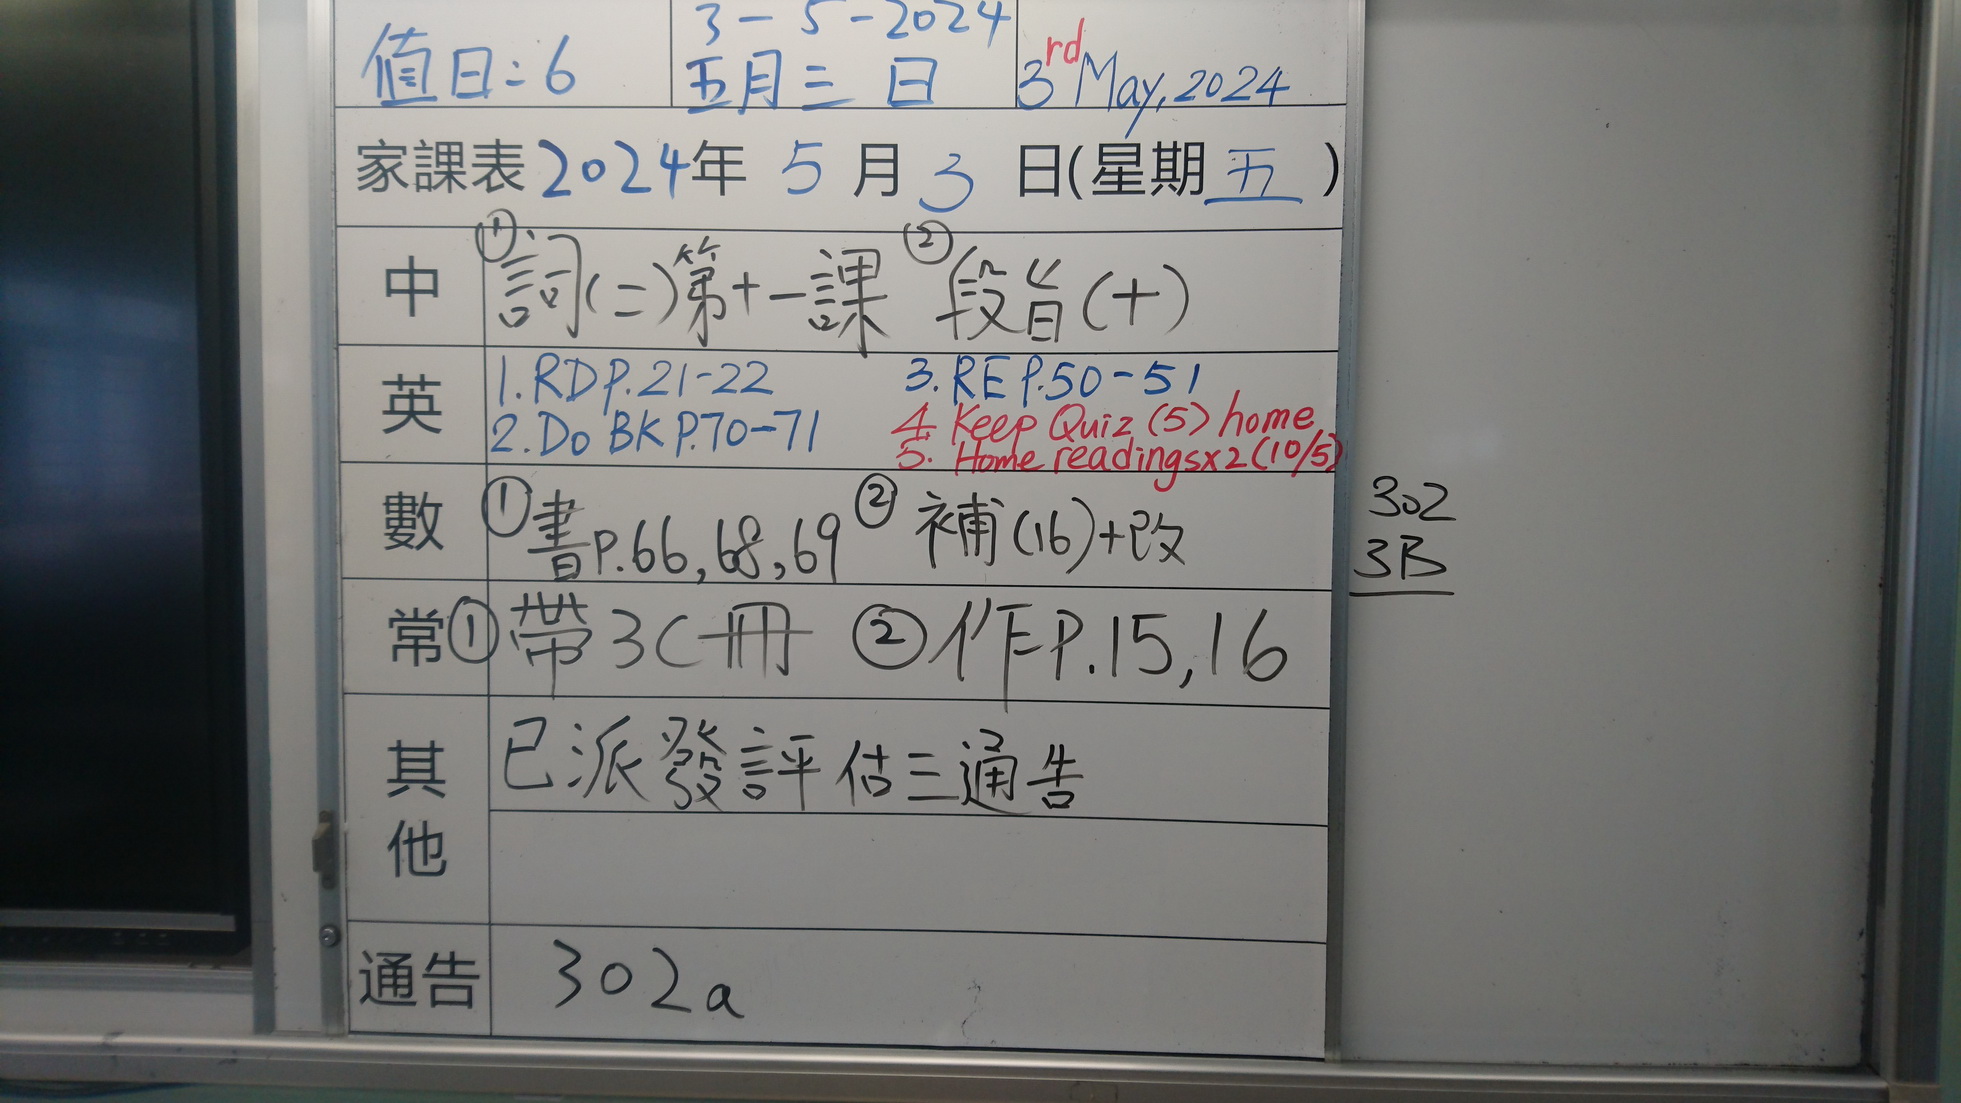 值日:6
3-5-2024
五月三日
3rd May, 2024
家課表2024年5月3日(星期五)
中 ①詞(二)第十一課 ②段旨(十)
英 1.RD P.21-22 3.RE P.50-51
2.Do BK P.70-71 4. Keep Quiz (5) home
5. Home readingsx2(10/5)
數 ①書P.66,68,69 ②補(16)+改
常 ①帶3C冊 ②作P.15,16
其他 已派發評估三通告
通告 302a
302
3B